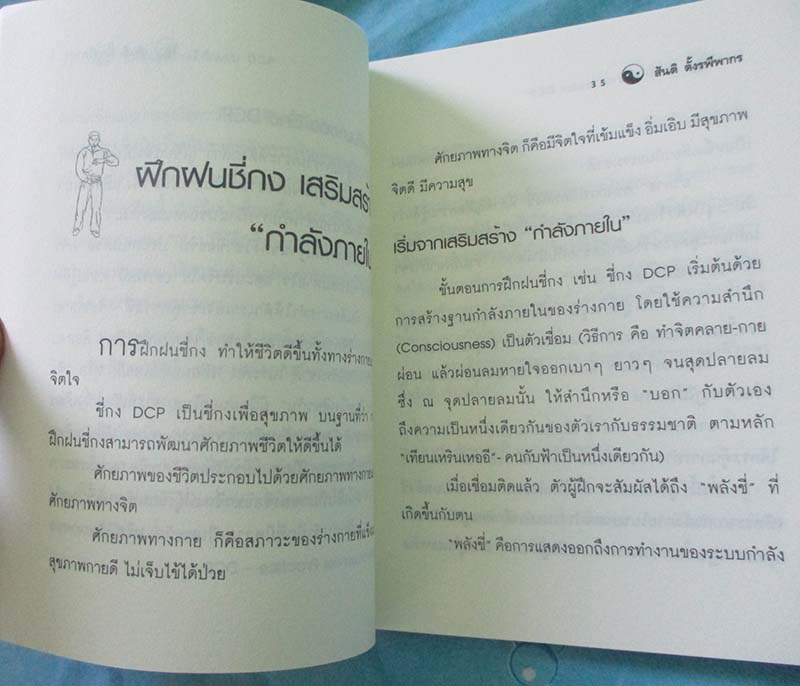 ฝึกฝนชี่กง เสริมสร้
“กำลังภายใน
การฝึกฝนชี่กง ทำให้ชีวิตดีขึ้นทั้งทางร่างกาย
จิตใจ
ชี่กง DCP เป็นชี่กงเพื่อสุขภาพ บนฐานที่ว่า
ฝึกฝนชี่กงสามารถพัฒนาศักยภาพชีวิตให้ดีขึ้นได้
ศักยภาพของชีวิตประกอบไปด้วยศักยภาพทางกาย
ศักยภาพทางจิต
ศักยภาพทางกาย ก็คือสภาวะของร่างกายที่แข็ง
สุขภาพกายดี ไม่เจ็บไข้ได้ป่วย
35 สันติ ตั้งรพีพากร
ศักยภาพทางจิต ก็คือมีจิตใจที่เข้มแข็ง อิ่มเอิบ มีสุขภาพ
จิตดี มีความสุข
เริ่มจากเสริมสร้าง “กำลังภายใน”
ขั้นตอนการฝึกฝนชี่กง เช่น ชี่กง DCP เริ่มต้นด้วย
การสร้างฐานกำลังภายในของร่างกาย โดยใช้ความสำนึก
(Consciousness) เป็นตัวเชื่อม (วิธีการ คือ ทำจิตคลาย-กาย
ผ่อน แล้วผ่อนลมหายใจออกเบาๆ ยาวๆ จนสุดปลายลม
ซึ่ง ณ จุดปลายลมนั้น ให้สำนึกหรือ "บอก" กับตัวเอง
ถึงความเป็นหนึ่งเดียวกันของตัวเรากับธรรมชาติ ตามหลัก
"เทียนเหรินเหออี"- คนกับฟ้าเป็นหนึ่งเดียวกัน)
เมื่อเชื่อมติดแล้ว ตัวผู้ฝึกจะสัมผัสได้ถึง "พลังชี่" ที่
เกิดขึ้นกับตน
"พลังชี่" คือการแสดงออกถึงการทำงานของระบบกำลัง